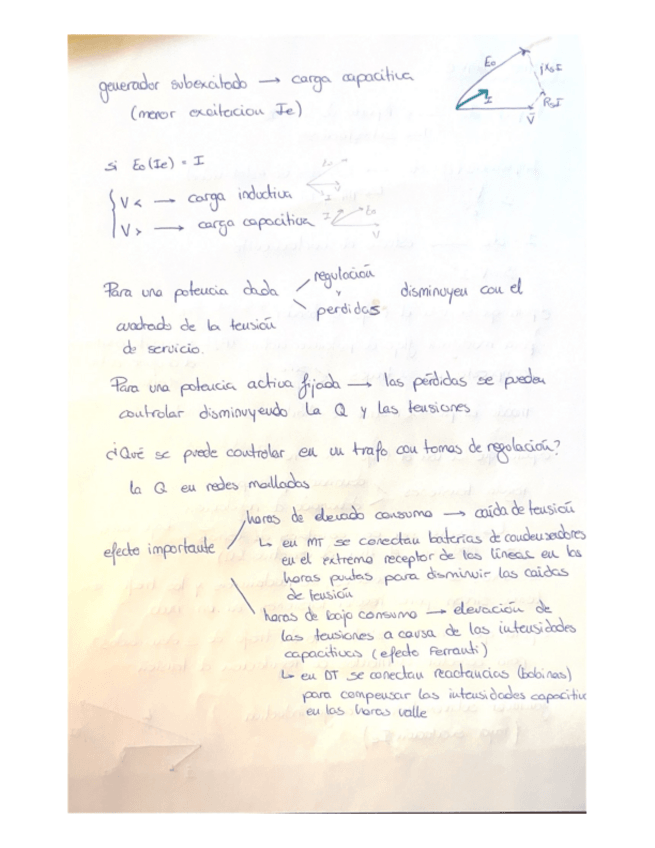 generador subexcitado → carga capacitiva
(menor excitacion Ie)
E₀
jXsI
I
RsI
V
si E₀(Ie) = I
V < → carga inductiva
V
I
V > → carga capacitiva
I
E₀
V
Para una potencia dada
regulación
y
perdidas
disminuyen con el
cuadrado de la tensión
de servicio.
Para una potencia activa fijada → las pérdidas se pueden
controlar disminuyendo la Q y las tensiones
¿Qué se puede controlar en un trafo con tomas de regulación?
la Q en redes malladas
efecto importante
horas de elevado consumo → caída de tensión
↳ en MT se conectan baterías de condensadores
en el extremo receptor de las líneas en las
horas puntas para disminuir las caidas
de tensión
horas de bajo consumo → elevación de
las tensiones a causa de las intensidades
capacitivas (efecto Ferranti)
↳ en DT se conectan reactancias (bobinas)
para compensar las intensidades capacitiv
en las horas valle